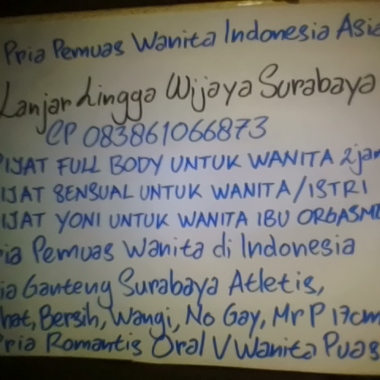 Pria Pemuas Wanita Indonesia Asia
Lanjar Lingga Wijaya Surabaya
CP 083861066873
PIJAT FULL BODY UNTUK WANITA 2jam
PIJAT SENSUAL UNTUK WANITA/ISTRI
PIJAT YONI UNTUK WANITA IBU ORGASME
Pria Pemuas Wanita di Indonesia
Pria Ganteng Surabaya Atletis,
Sehat, Bersih, Wangi, No Gay, Mr P 17cm
Pria Romantis Oral V Wanita Puas